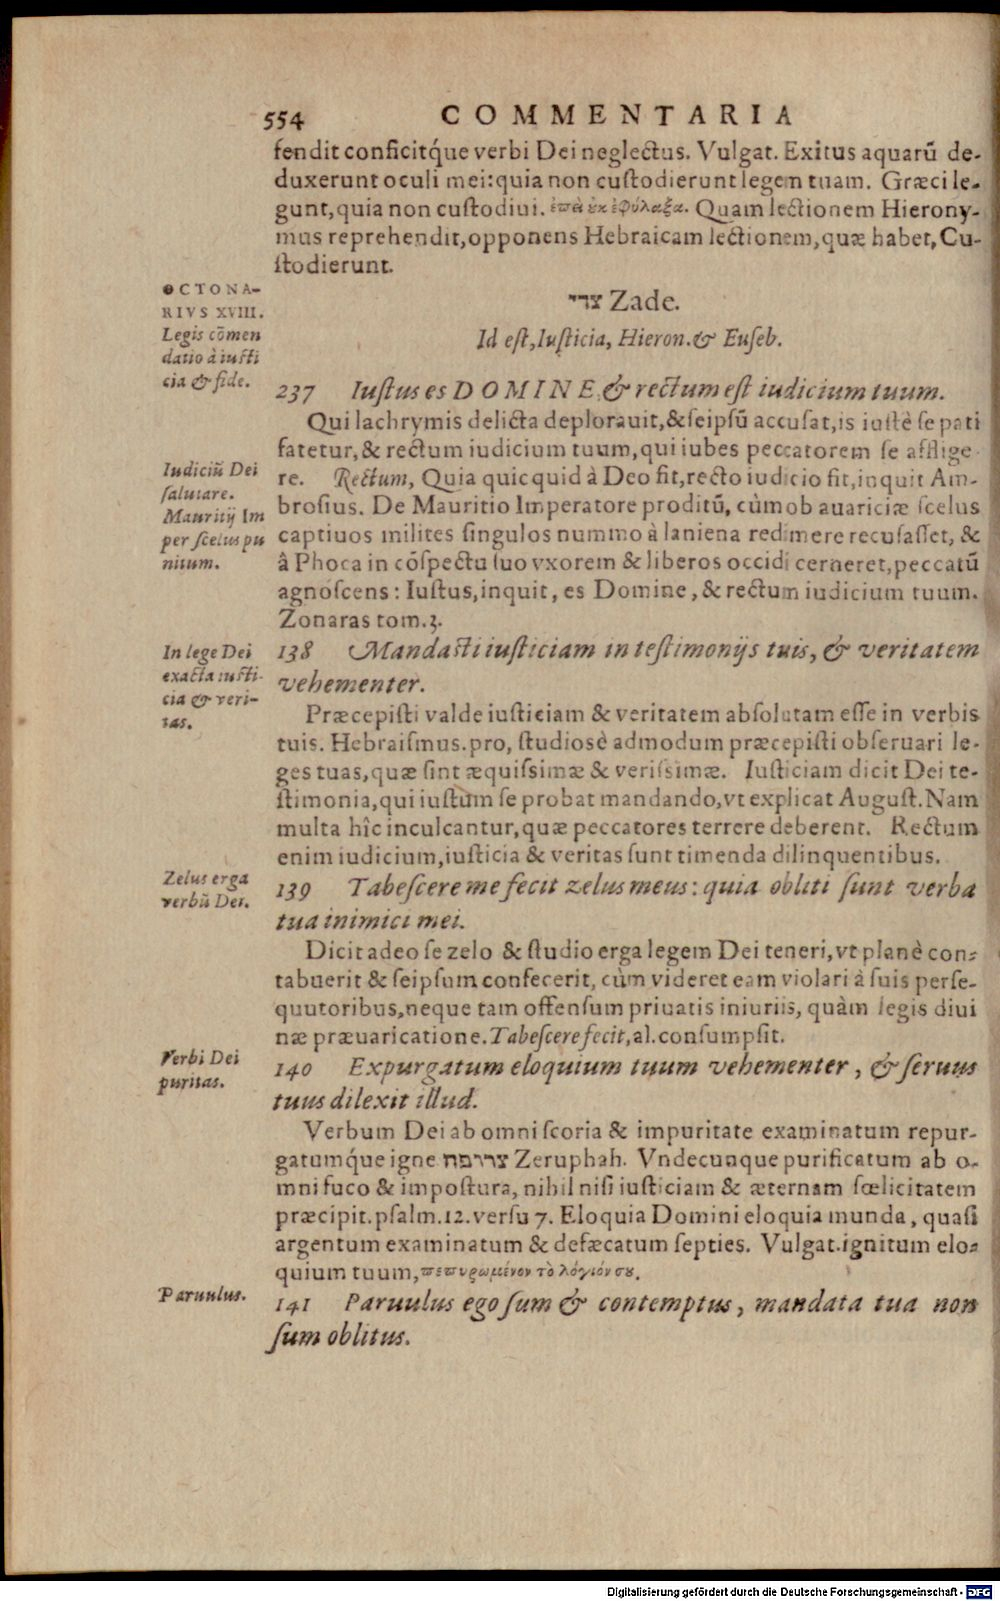 554 COMMENTARIA
fendit conficitq́ue verbi Dei neglectus. Vulgat. Exitus aquarū de-
duxerunt oculi mei: quia non custodierunt legem tuam. Græci le-
gunt, quia non custodiui. ἐπεὶ ἐκ ἐφύλαξα. Quam lectionem Hierony-
mus reprehendit, opponens Hebraicam lectionem, quæ habet, Cu-
stodierunt.
OCTONA-
RIVS XVIII.
Legis cōmen
datio à iusti
cia & fide.
צדי Zade.
Id est, Iusticia, Hieron. & Euseb.
237 Iustus es DOMINE, & rectum est iudicium tuum.
Qui lachrymis delicta deplorauit, & seipsū accusat, is iustè se pati
fatetur, & rectum iudicium tuum, qui iubes peccatorem se afflige
re. Rectum, Quia quicquid à Deo fit, recto iudicio fit, inquit Am-
brosius. De Mauritio Imperatore proditū, cùm ob auariciæ scelus
captiuos milites singulos nummo à laniena redimere recusasset, &
â Phoca in cōspectu suo vxorem & liberos occidi cerneret, peccatū
agnoscens: Iustus, inquit, es Domine, & rectum iudicium tuum.
Zonaras tom.3.
Iudiciū Dei
salutare.
Mauritij Im
per scelus pu
nitum.
138 Mandasti iusticiam in testimonijs tuis, & veritatem
vehementer.
In lege Dei
exacta iusti-
cia & veri-
tas.
Præcepisti valde iusticiam & veritatem absolutam esse in verbis
tuis. Hebraismus. pro, studiosè admodum præcepisti obseruari le-
ges tuas, quæ sint æquissimæ & verissimæ. Iusticiam dicit Dei te-
stimonia, qui iustum se probat mandando, vt explicat August. Nam
multa hîc inculcantur, quæ peccatores terrere deberent. Rectum
enim iudicium, iusticia & veritas sunt timenda dilinquentibus.
Zelus erga
verbū Dei.
139 Tabescere me fecit zelus meus: quia obliti sunt verba
tua inimici mei.
Dicit adeo se zelo & studio erga legem Dei teneri, vt planè con-
tabuerit & seipsum confecerit, cùm videret eam violari à suis perse-
quutoribus, neque tam offensum priuatis iniuriis, quàm legis diui
næ præuaricatione. Tabescere fecit, al. consumpsit.
Verbi Dei
puritas.
140 Expurgatum eloquium tuum vehementer, & seruus
tuus dilexit illud.
Verbum Dei ab omni scoria & impuritate examinatum repur-
gatumq́ue igne צרופה Zeruphah. Vndecunque purificatum ab o-
mni fuco & impostura, nihil nisi iusticiam & æternam fœlicitatem
præcipit. psalm.12.versu 7. Eloquia Domini eloquia munda, quasi
argentum examinatum & defæcatum septies. Vulgat. ignitum elo-
quium tuum, πεπυρωμένον τὸ λόγιόν σου.
Paruulus.
141 Paruulus ego sum & contemptus, mandata tua non
sum oblitus.
Digitalisierung gefördert durch die Deutsche Forschungsgemeinschaft - DFG